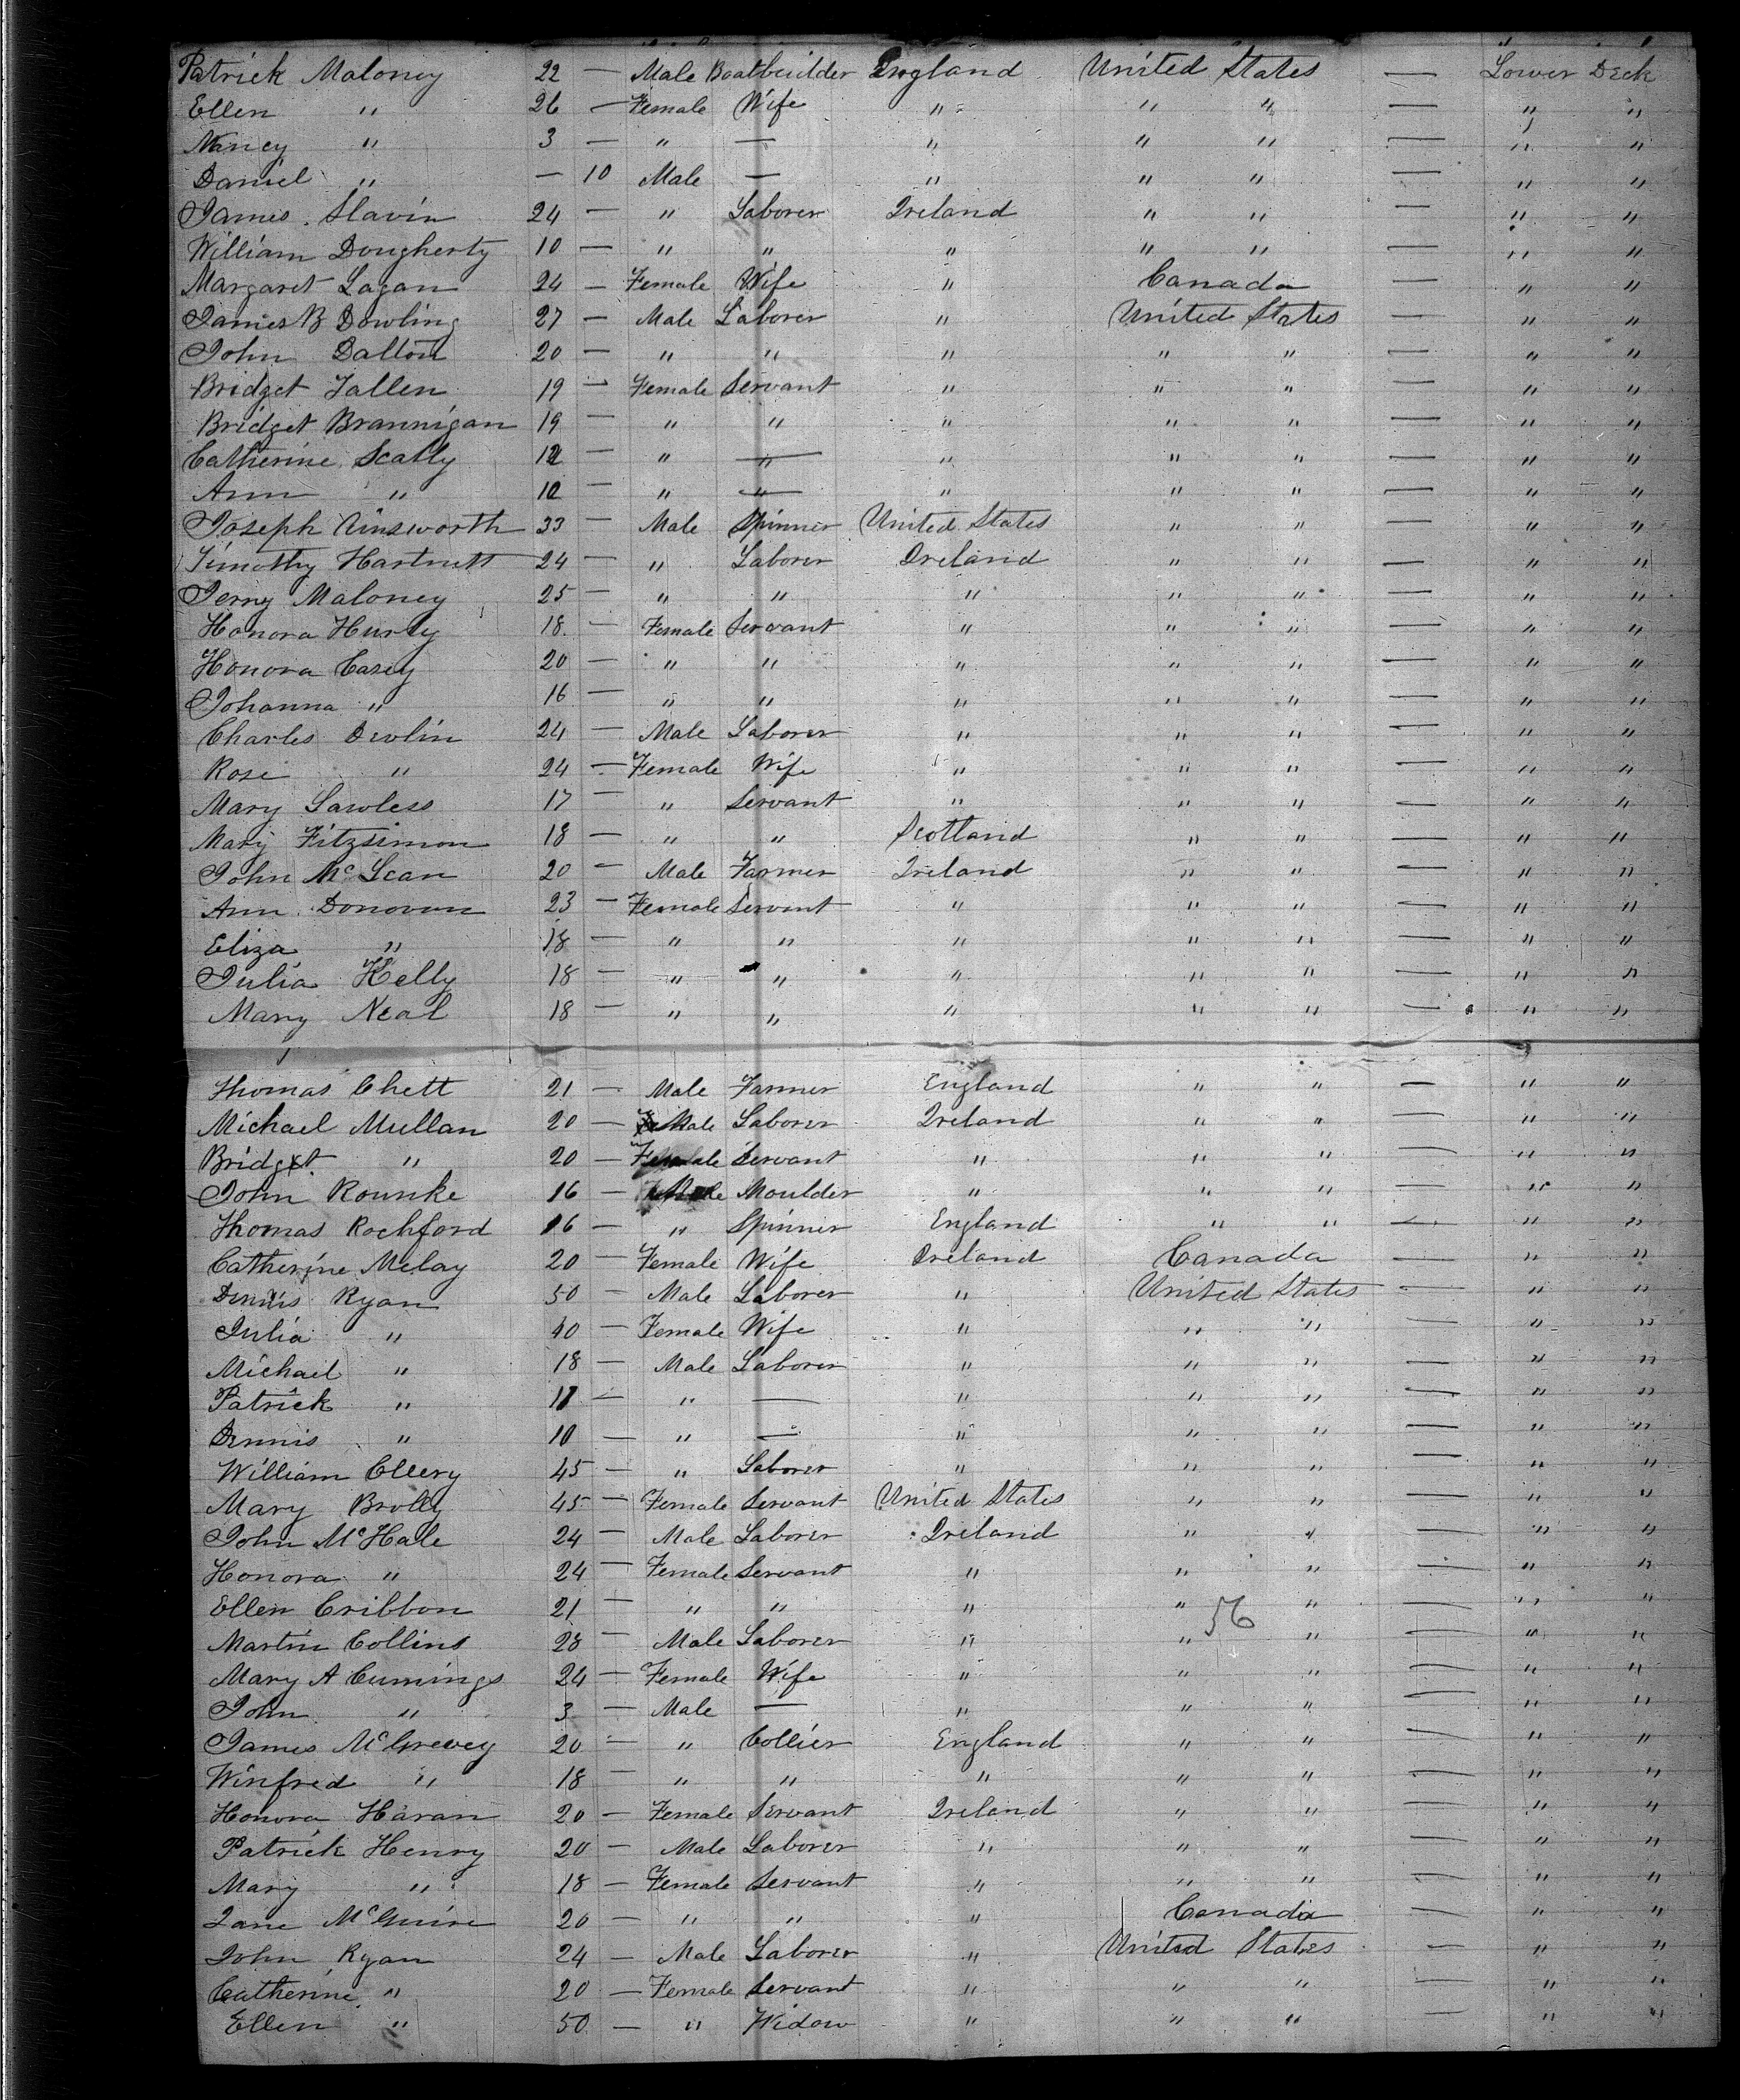 Patrick Maloney 22 — Male Boatbuilder England United States — Lower Deck
Ellen " 26 — Female Wife " " " — " "
Nancy " 3 — " — " " " — " "
Daniel " — 10 Male — " " " — " "
James Slavin 24 — " Laborer Ireland " " — " "
William Dougherty 10 — " " " " " — " "
Margaret Lagan 24 — Female Wife " Canada — " "
James B Dowling 27 — Male Laborer " United States — " "
John Dalton 20 — " " " " " — " "
Bridget Fallen 19 — Female Servant " " " — " "
Bridget Brannigan 19 — " " " " " — " "
Catherine Scally 12 — " — " " " — " "
Ann " 10 — " — " " " — " "
Joseph Ainsworth 33 — Male Spinner United States " " — " "
Timothy Hartnett 24 — " Laborer Ireland " " — " "
Jerry Maloney 25 — " " " " " — " "
Honora Hurly 18 — Female Servant " " " — " "
Honora Casey 20 — " " " " " — " "
Johanna " 16 — " " " " " — " "
Charles Devlin 24 — Male Laborer " " " — " "
Rose " 24 — Female Wife " " " — " "
Mary Lawless 17 — " Servant " " " — " "
Mary Fitzsimon 18 — " " Scotland " " — " "
John McLean 20 — Male Farmer Ireland " " — " "
Ann Donovan 23 — Female Servant " " " — " "
Eliza " 18 — " " " " " — " "
Julia Kelly 18 — " " " " " — " "
Mary Neal 18 — " " " " " — " "
Thomas Chett 21 — Male Farmer England " " — " "
Michael Mullan 20 — Male Laborer Ireland " " — " "
Bridget " 20 — Female Servant " " " — " "
John Rounke 16 — Male Moulder " " " — " "
Thomas Rochford 16 — " Spinner England " " — " "
Catherine Melay 20 — Female Wife Ireland Canada — " "
Dennis Ryan 50 — Male Laborer " United States — " "
Julia " 40 — Female Wife " " " — " "
Michael " 18 — Male Laborer " " " — " "
Patrick " 11 — " — " " " — " "
Dennis " 10 — " — " " " — " "
William Ellery 45 — " Laborer " " " — " "
Mary Brolly 45 — Female Servant United States " " — " "
John McHale 24 — Male Laborer Ireland " " — " "
Honora " 24 — Female Servant " " " — " "
Ellen Cribbon 21 — " " " " 56 " — " "
Martin Collins 28 — Male Laborer " " " — " "
Mary A Cumings 24 — Female Wife " " " — " "
John " 3 — Male — " " " — " "
James McGrevey 20 — " Collier England " " — " "
Winfred " 18 — " " " " " — " "
Honora Haran 20 — Female Servant Ireland " " — " "
Patrick Henry 20 — Male Laborer " " " — " "
Mary " 18 — Female Servant " " " — " "
Jane McGuire 20 — " " " Canada — " "
John Ryan 24 — Male Laborer " United States — " "
Catherine " 20 — Female Servant " " " — " "
Ellen " 50 — " Widow " " " — " "